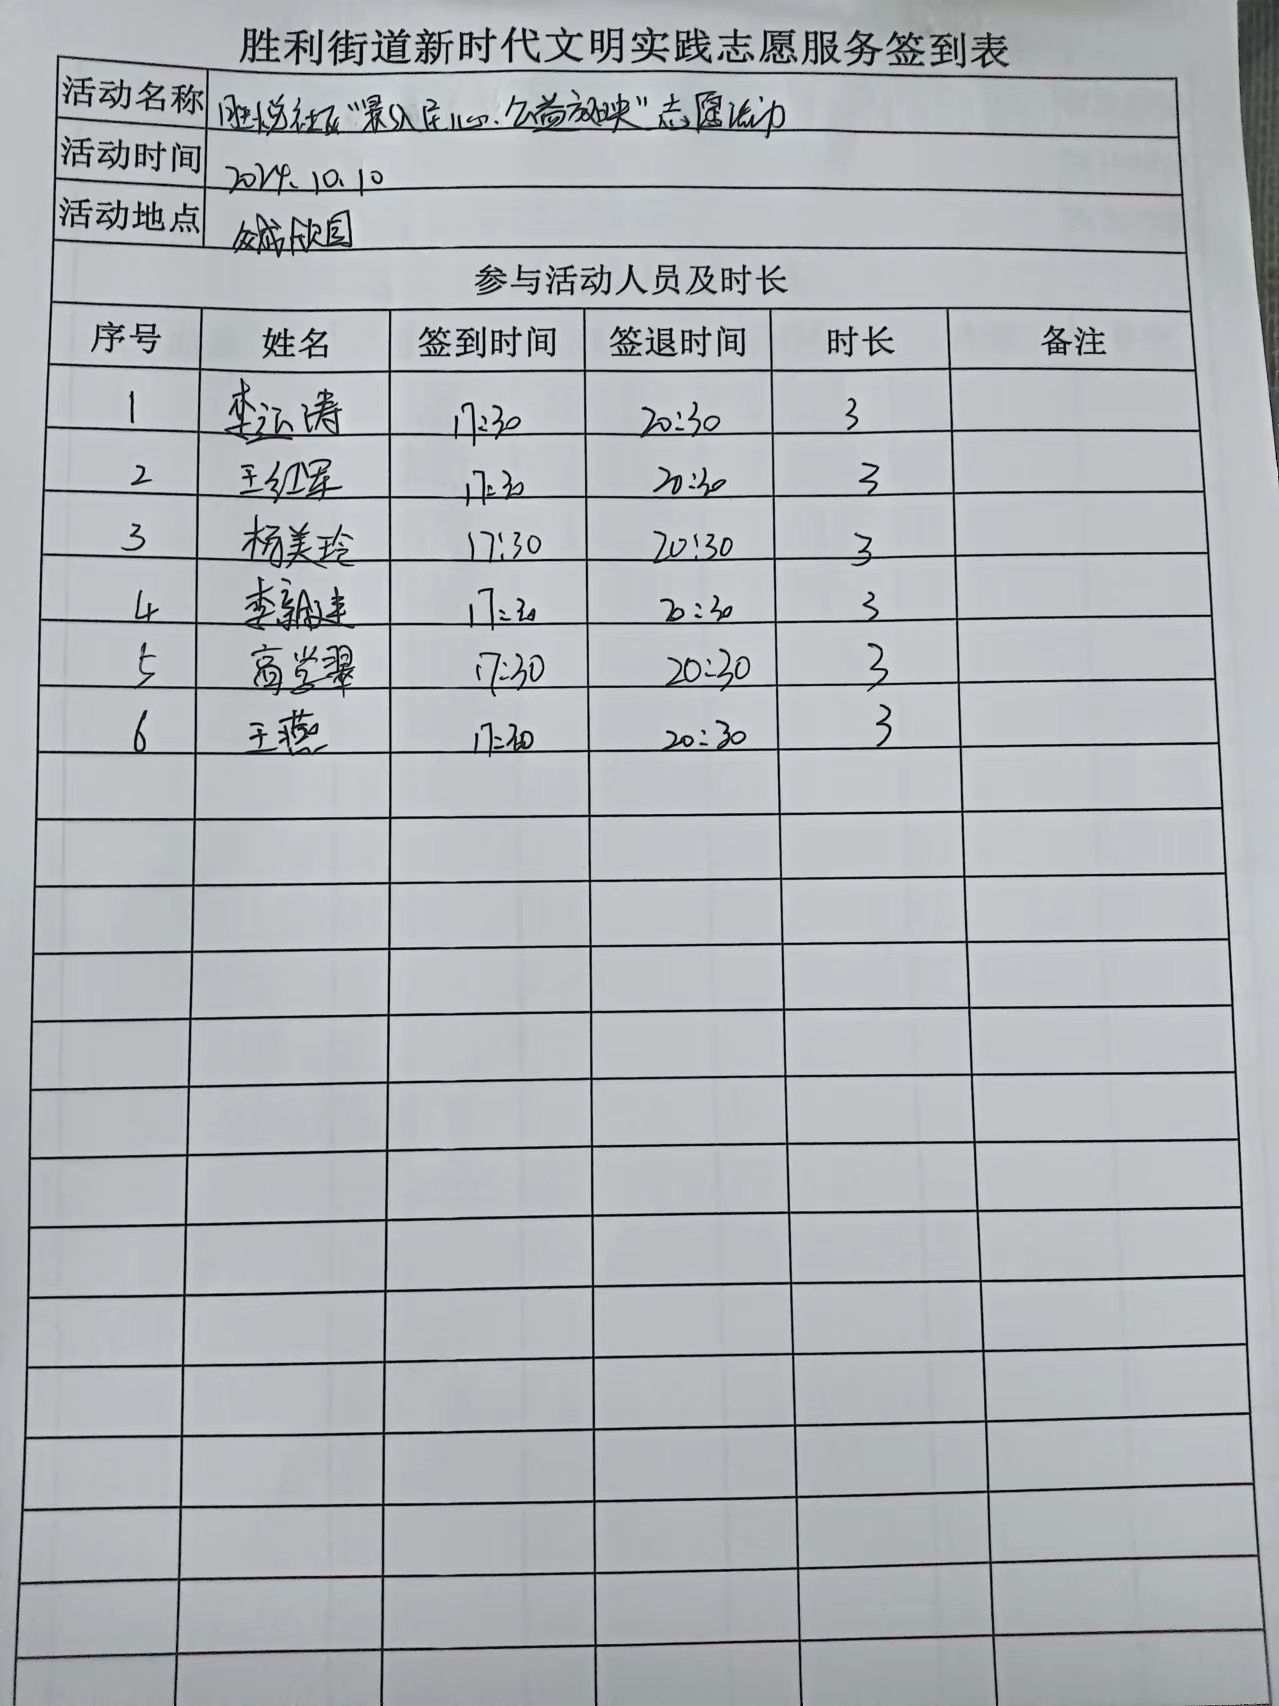 胜利街道新时代文明实践志愿服务签到表
活动名称 胜悦社区“聚人民心·公益放映”志愿活动
活动时间 2024.10.10
活动地点 欣园
参与活动人员及时长
序号 姓名 签到时间 签退时间 时长 备注
1 李涛 17:30 20:30 3
2 王红军 17:30 20:30 3
3 杨美玲 17:30 20:30 3
4 李新建 17:30 20:30 3
5 高学翠 17:30 20:30 3
6 王燕 17:30 20:30 3